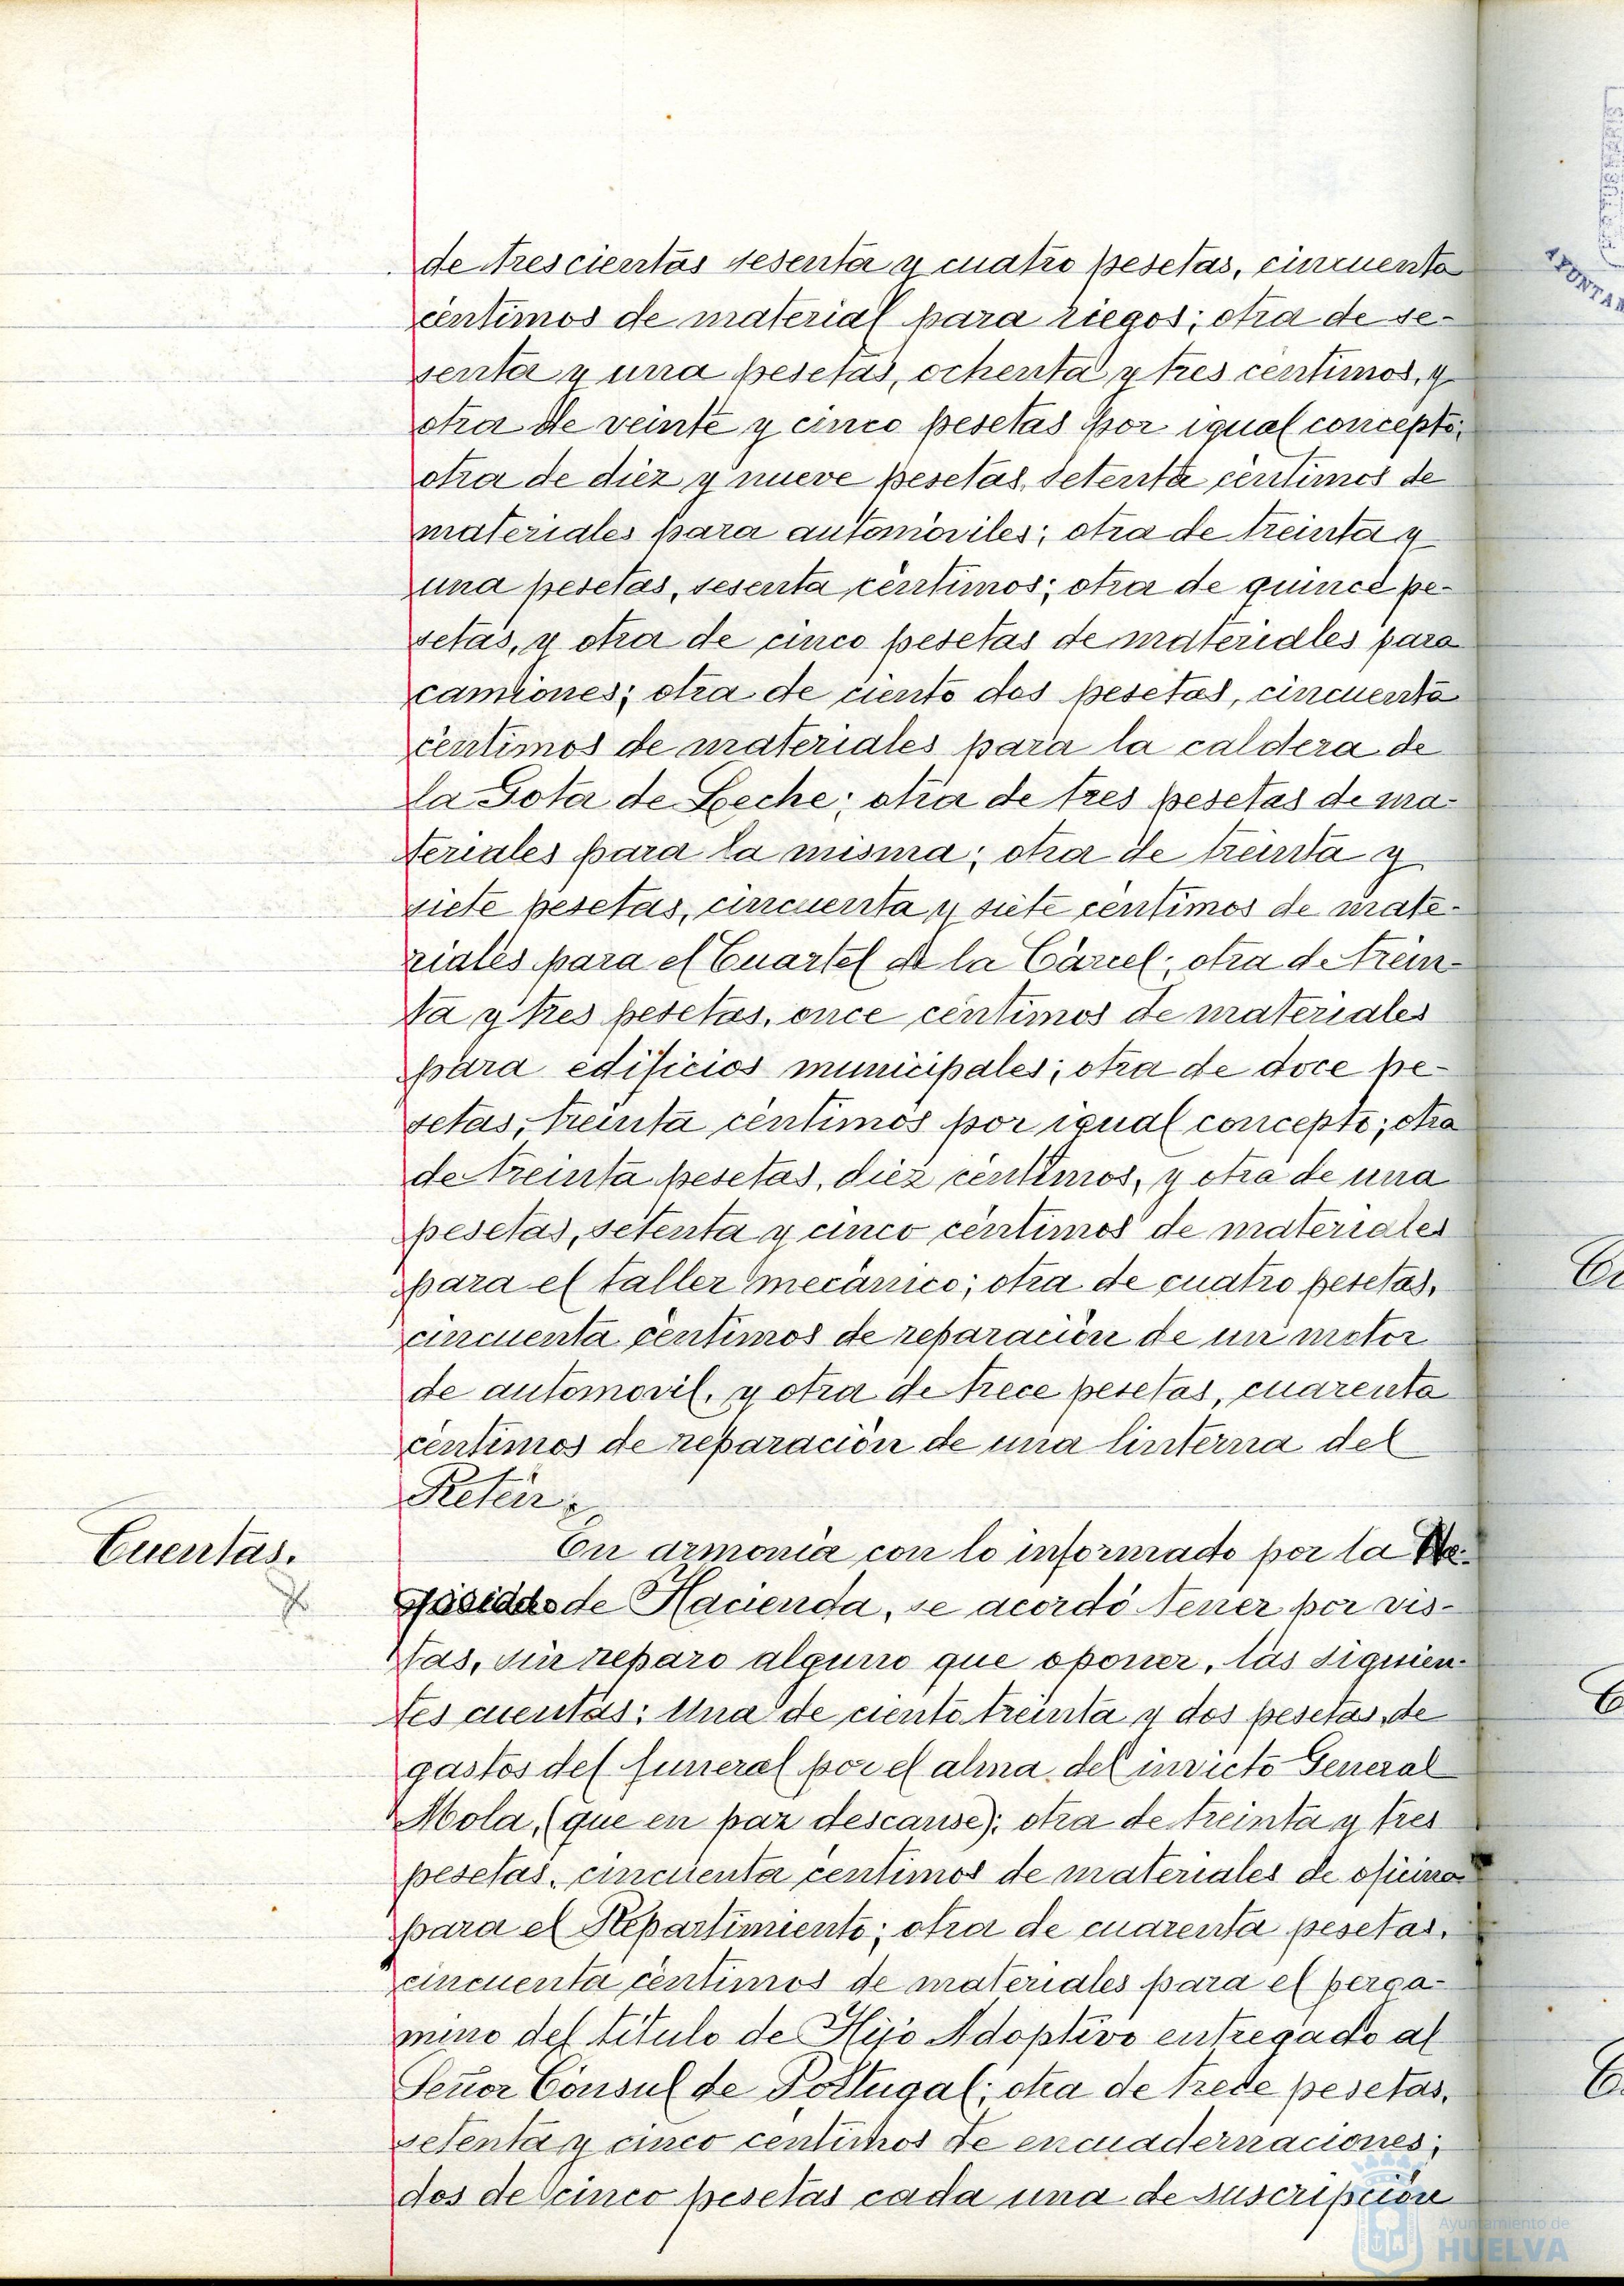 de trescientas sesenta y cuatro pesetas, cincuenta
céntimos de material para riegos; otra de se-
senta y una pesetas, ochenta y tres centimos, y
otra de veinte y cinco pesetas por igual concepto;
otra de diez y nueve pesetas, setenta centimos de
materiales para automóviles; otra de treinta y
una pesetas, sesenta céntimos; otra de quince pe-
setas, y otra de cinco pesetas de materiales para
camiones; otra de ciento dos pesetas, cincuenta
céntimos de materiales para la caldera de
La Gota de Leche; otra de tres pesetas de ma-
teriales para la misma; otra de treinta y
siete pesetas, cincuenta y siete centimos de mate-
riales para el Cuartel de la Cárcel; otra de trein-
ta y tres pesetas, once céntimos de materiales
para edificios municipales; otra de doce pe-
setas, treinta céntimos por igual concepto; otra
de treinta pesetas, diez centimos, y otra de una
pesetas, setenta y cinco céntimos de materiales
para el taller mecánico; otra de cuatro pesetas,
cincuenta céntimos de reparación de un motor
de automovil, y otra de trece pesetas, cuarenta
céntimos de reparación de una linterna del
Retén.
Cuentas.
En armonia con lo informado por la Ne-
de Hacienda, se acordó tener por vis-
tas, sin reparo alguno que oponer, las siguien-
tes cuentas: Una de ciento treinta y dos pesetas, de
gastos del funeral por el alma del invicto General
Mola, (que en paz descanse); otra de treinta y tres
pesetas, cincuenta centimos de materiales de oficina
para el Repartimiento; otra de cuarenta pesetas,
cincuenta céntimos de materiales para el perga-
mino del título de Hijo Adoptivo entregado al
Señor Cónsul de Portugal; otra de trece pesetas,
setenta y cinco centimos de encuadernaciones;
dos de cinco pesetas cada una de suscripción
Ayuntamiento de
HUELVA